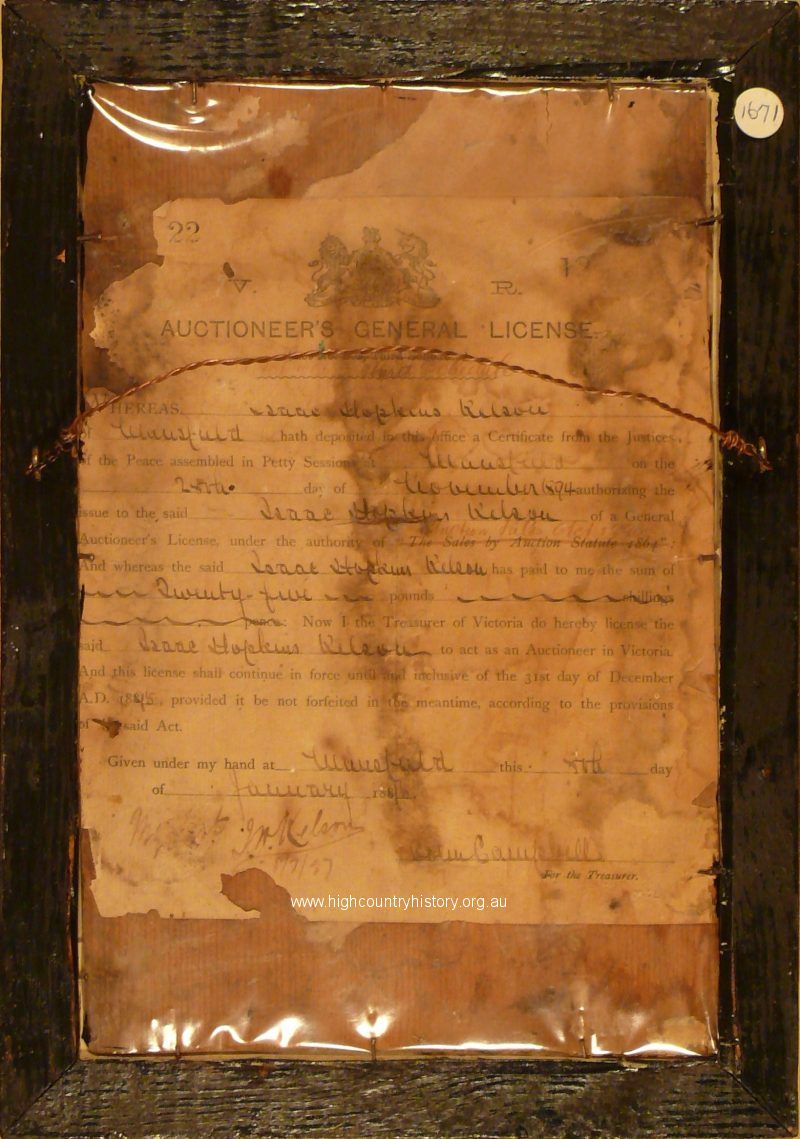 1671
22
V. R.
AUCTIONEER'S GENERAL LICENSE
WHEREAS Isaac Hopkins Kelson
of Mansfield hath deposited in this office a Certificate from the Justices
of the Peace assembled in Petty Session at Mansfield on the
28th day of November 1894 authorizing the
issue to the said Isaac Hopkins Kelson of a General
Auctioneer's License, under the authority of "The Sales by Auction Statute 1864":
And whereas the said Isaac Hopkins Kelson has paid to me the sum of
Twenty-five pounds shillings
pence: Now I the Treasurer of Victoria do hereby license the
said Isaac Hopkins Kelson to act as an Auctioneer in Victoria
And this license shall continue in force until and inclusive of the 31st day of December
A.D. , provided it be not forfeited in the meantime, according to the provisions
of said Act.
Given under my hand at Mansfield this 8th day
of January
Kelson
Campbell
For the Treasurer.
www.highcountryhistory.org.au